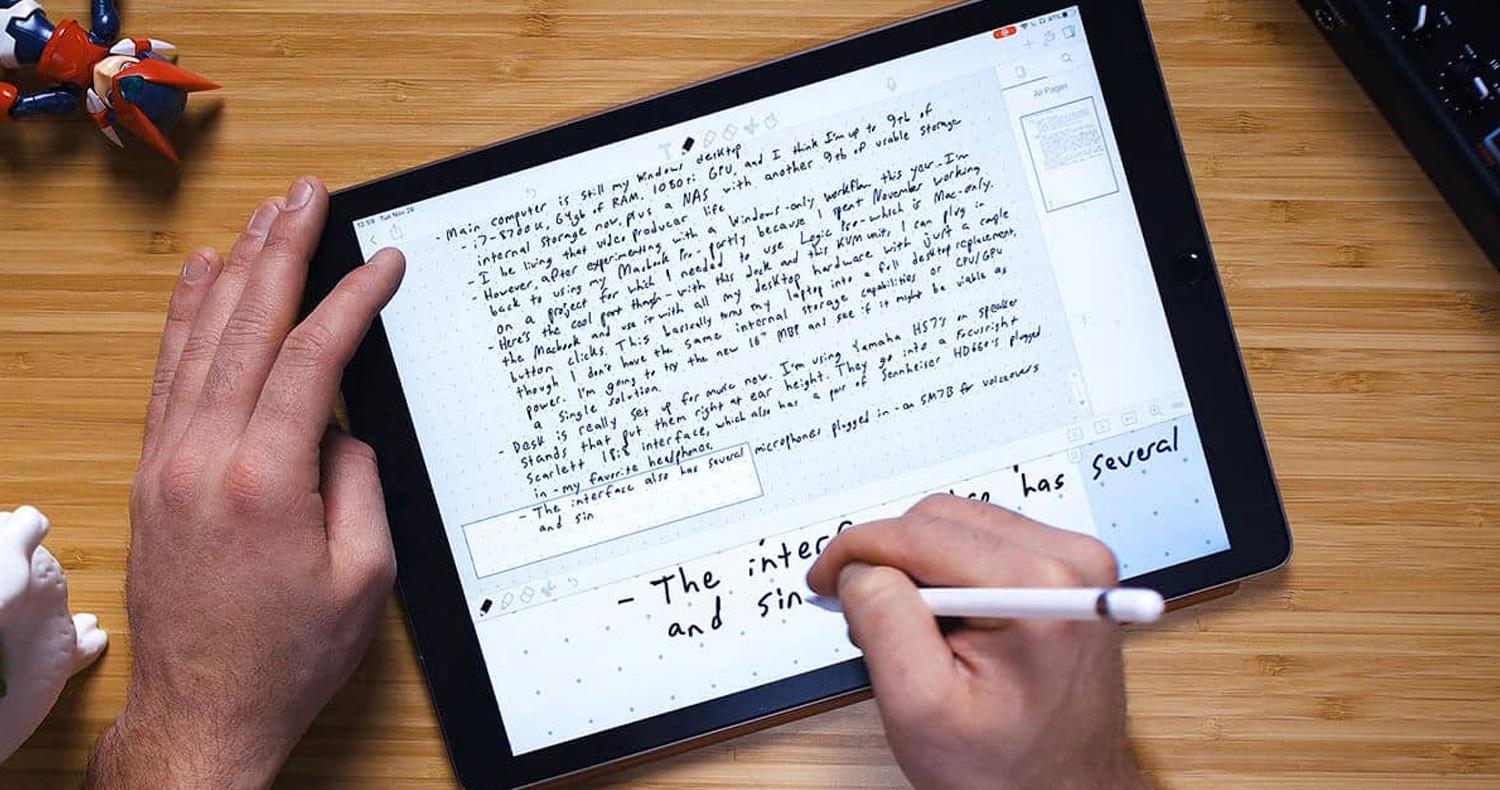 12:59 Tue Nov 26
All Pages
- Main computer is still my Windows desktop
- i7-8700K, 64gb of RAM, 1080ti GPU, and I think I'm up to 9tb of
internal storage now, plus a NAS with another 9tb of usable storage
- I be living that video producer life
- However, after experimenting with a Windows-only workflow this year, I'm
back to using my Macbook Pro - partly because I spent November working
on a project for which I needed to use Logic Pro - which is Mac-only.
- Here's the cool part though - with this dock and this KVM unit, I can plug in
the Macbook and use it with all my desktop hardware with just a couple
button clicks. This basically turns my laptop into a full desktop replacement,
though I don't have the same internal storage capabilities or CPU/GPU
power. I'm going to try the new 16" MBP and see if it might be viable as
a single solution.
- Desk is really set up for music now. I'm using Yamaha HS7's on speaker
stands that put them right at ear height. They go into a Focusright
Scarlett 18i8 interface, which also has a pair of Sennheiser HD660s plugged
in - my favorite headphones.
- The interface also has several microphones plugged in - an SM7B for voiceovers
and sin
- The inter has several
and sin